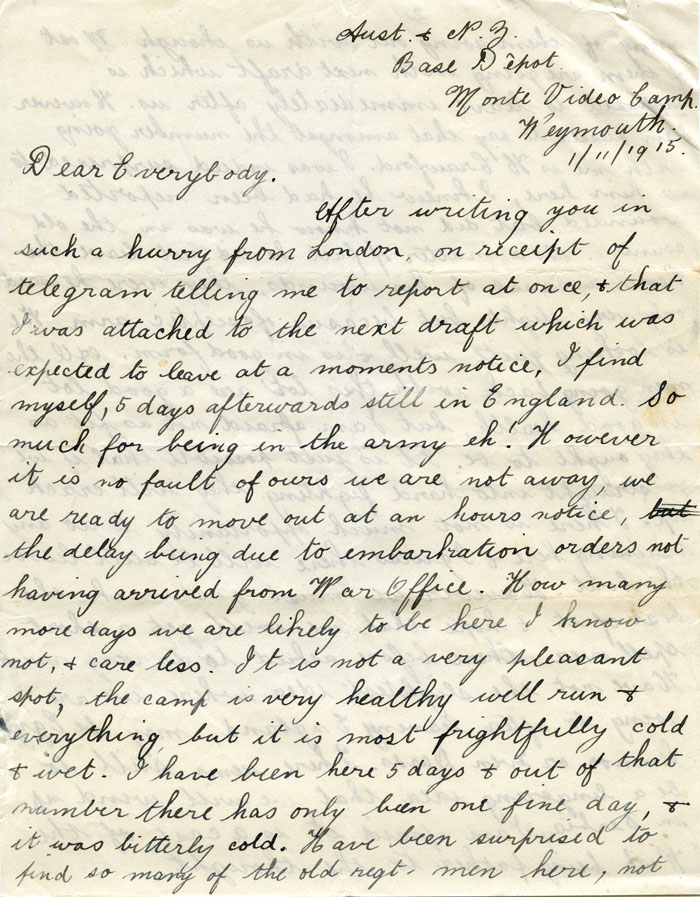 Aust. & N. Z.
Base Dêpot.
Monte Video Camp.
Weymouth.
1/11/1915.
Dear Everybody.
After writing you in
such a hurry from London, on receipt of
telegram telling me to report at once, & that
I was attached to the next draft which was
expected to leave at a moments notice, I find
myself, 5 days afterwards still in England. So
much for being in the army eh! However
it is no fault of ours we are not away, we
are ready to move out at an hours notice, but
the delay being due to embarkation orders not
having arrived from War Office. How many
more days we are likely to be here I know
not, & care less. It is not a very pleasant
spot, the camp is very healthy well run &
everything, but it is most frightfully cold
& wet. I have been here 5 days & out of that
number there has only been one fine day, &
it was bitterly cold. Have been surprised to
find so many of the old regt. men here, not